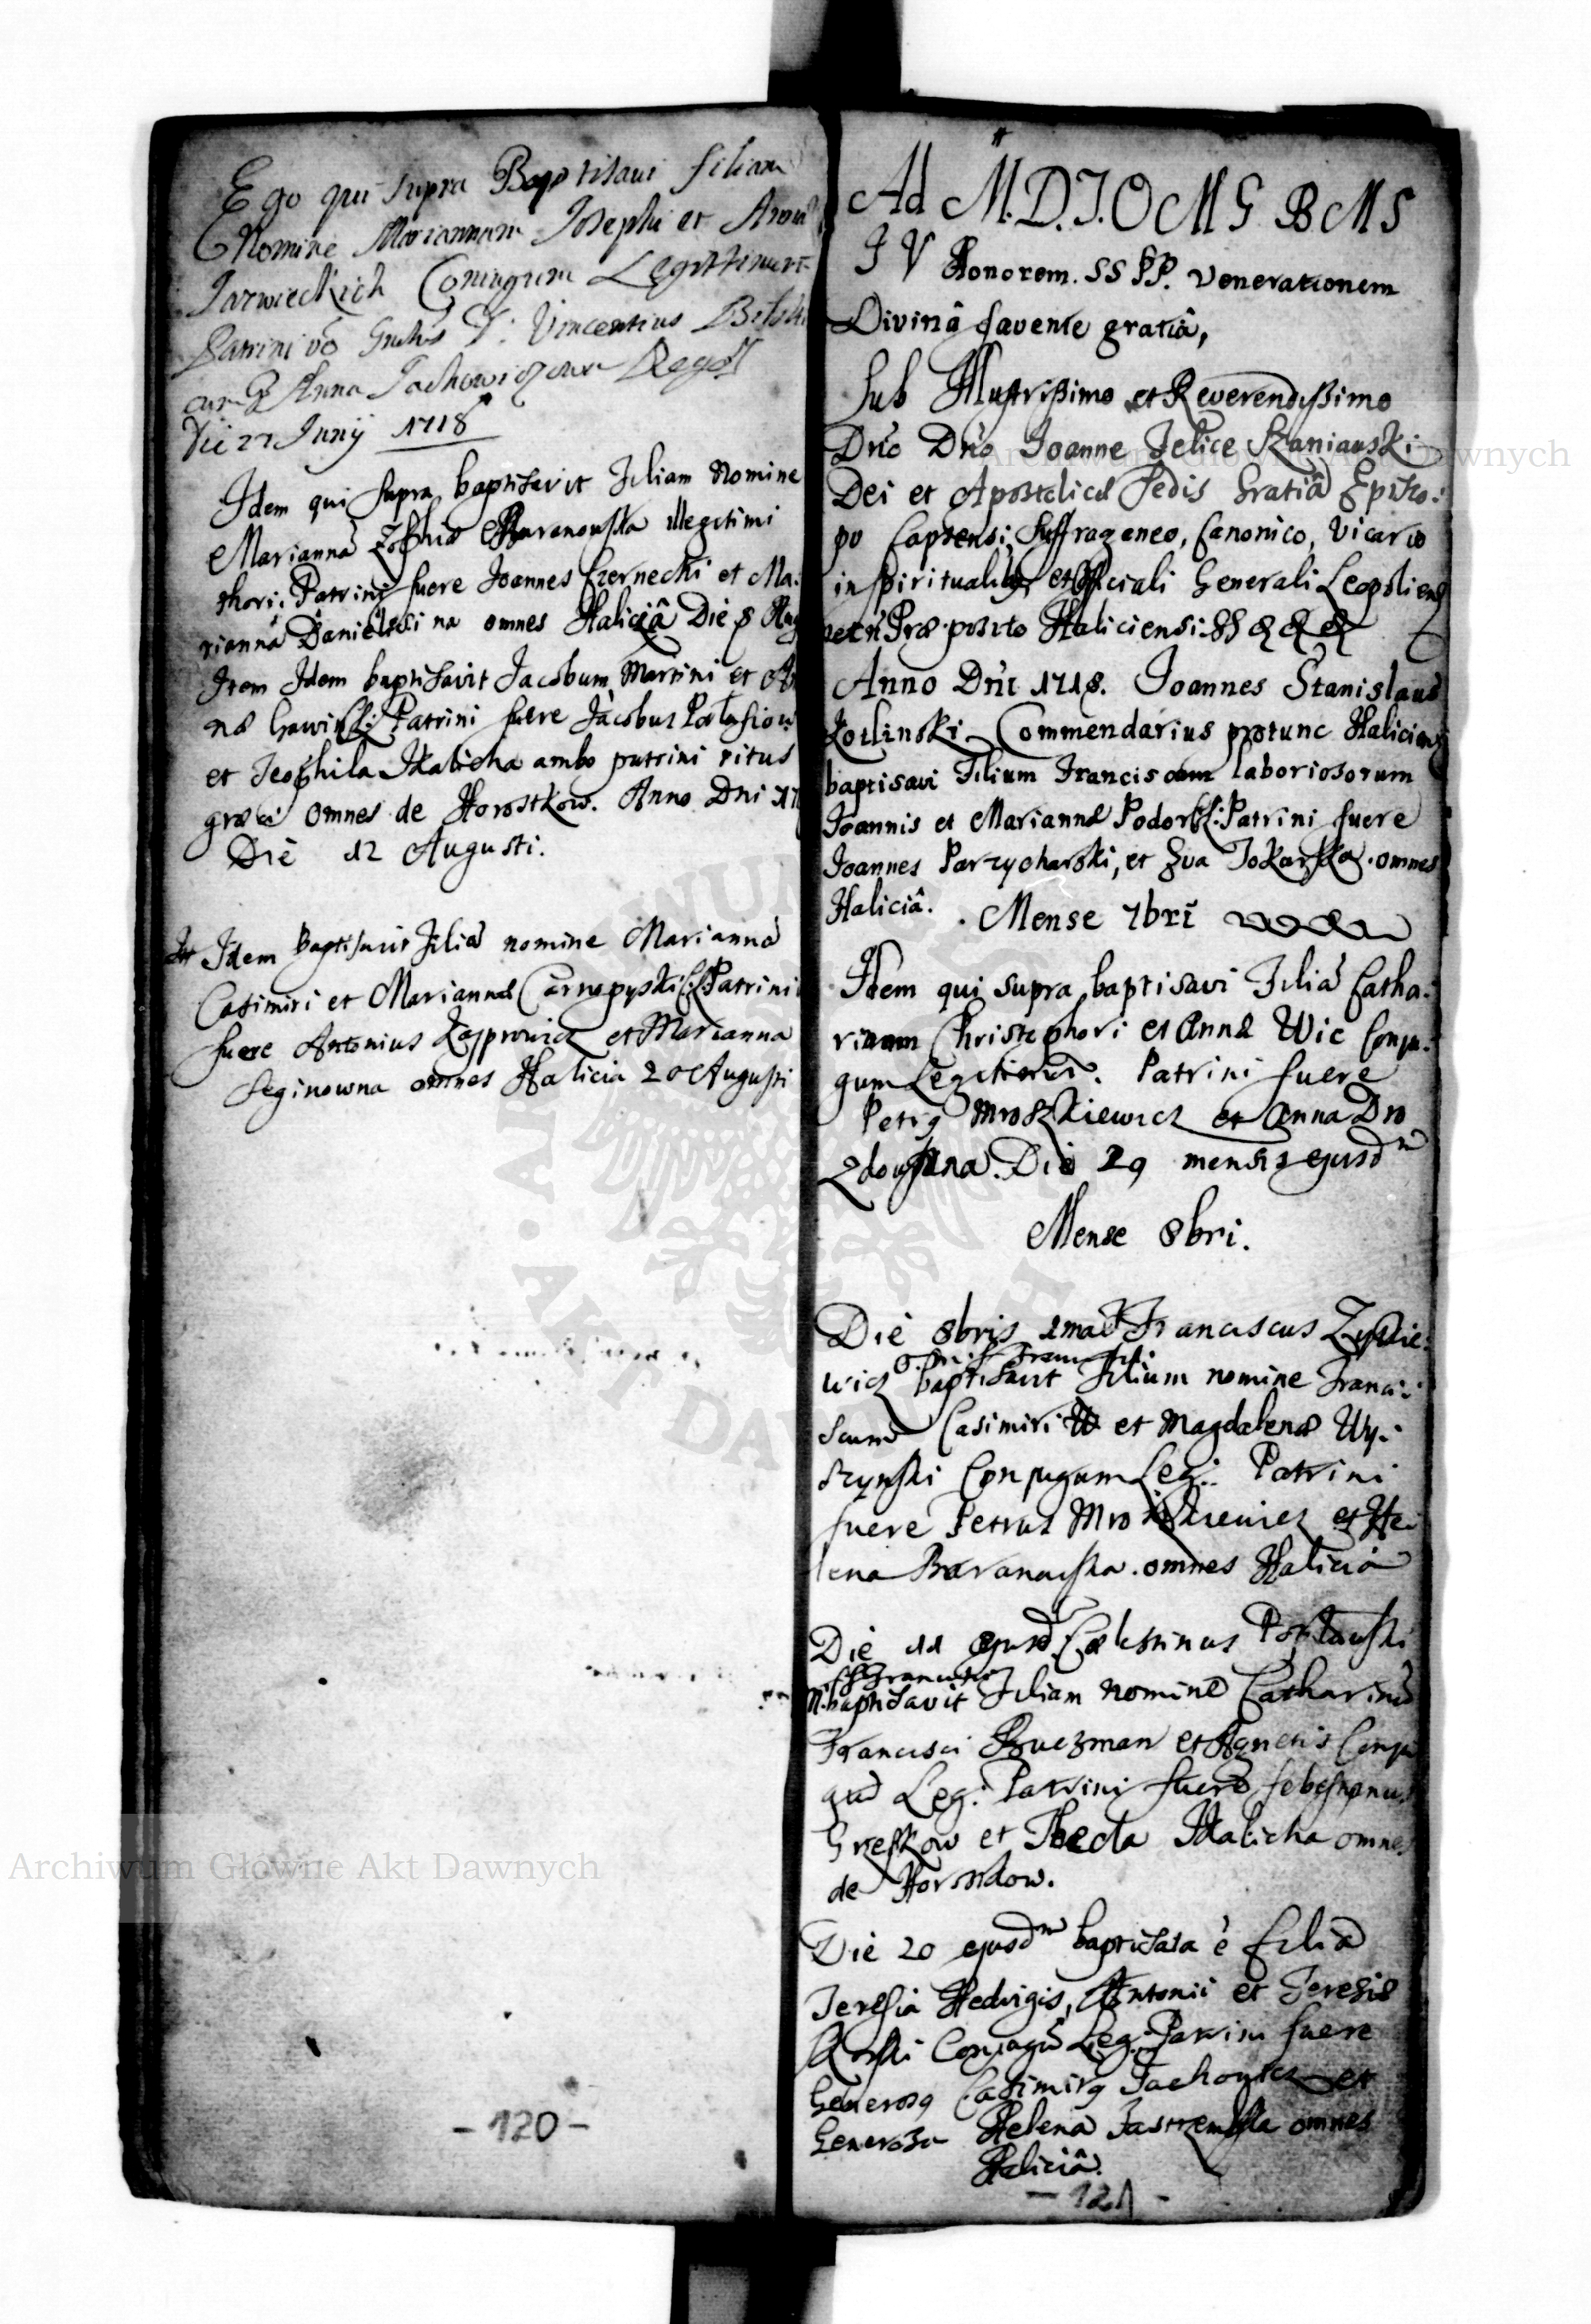 Ego qui supra Baptisavi filiam
Nomine Mariannam Josephi et Anna
Jarwieckich Coniugum Legittimor
Patrini vo Gnosus D: Vincentius Bilski
cum G Anna Jachowiczowa
Die 22 Junij 1718
Idem qui supra baptisavit Filiam Nomine
Marianna Zophia Baranouska illegitimi
thori: Patrini fuere Joannes Czernecki et Ma:
rianna Danielewi na omnes Haliciâ Die 8 Aug
Item Idem baptisavit Jacobum Martini et An
næ Gawinski Patrini fuere Jacobus
et Teophila Halicka ambo patrini ritus
græci omnes de Horostkow. Anno Dni 17
Die 12 Augusti.
Idem Baptisavit Filiã nomine Marianna
Casimiri et Mariannæ Carnopyski Patrini
fuere Antonius Kasprowicz et Marianna
Seginowna omnes Halicia 20 Augusti
- 120 -
Ad M. D. T. O M G B M S
I V Honorem. SS PP. Venerationem
Divinâ favente gratiâ,
Sub Illustrissimo et Reverendissimo
Dno Dno Joanne Felice Szaniauski
Dei et Apostolicæ Sedis Gratiâ Episco:
po Capsensi, Suffraganeo, Canonico, Vicario
in spiritualibus et Officiali Generali Leopoliens
Præ posito Haliciensi
Anno Dni 1718. Joannes Stanislaus
Kotlinski Commendarius protunc Haliciens
baptisavi Filium Franciscum laboriosorum
Joannis et Mariannæ Podorski: Patrini fuere
Joannes Parzycharski, et Eva Tokarska. omnes
Haliciâ. . Mense 7bri
Idem qui supra baptisavi Filiã Catha:
rinam Christophori et Annæ Wic Conju:
gum Legitimor. Patrini fuere
Petrus Mroszkiewicz et Anna Dro
zdowna. Die 29 mensis ejusdm
Mense 8bri.
Die 8bris 2ma Franciscus Zyskie:
wicz baptisavit Filium nomine Franci:
scum Casimiri et Magdalenæ Wy:
szynski Conjugum Leg: Patrini
fuere Petrus Mroszkiewicz et He:
lena Baranauska. omnes Haliciâ
Die 11 ejusd Cælestinus
baptisavit Filiam nomine Catharinã
Francisci Buczman et Agnetis Conju
gũ Leg: Patrini fuere
Greskow et Thecla Halicka omnes
de Horostkow.
Die 20 ejusdm baptisata ẽ filia
Teresia Hedvigis, Antonii et Teresiæ
Conjugũ Leg: Patrini fuere
Generosg Casimirg Jachowicz et
Generosa Helena Jastrzembska omnes
Haliciâ.
- 121 -
Archiwum Główne Akt Dawnych